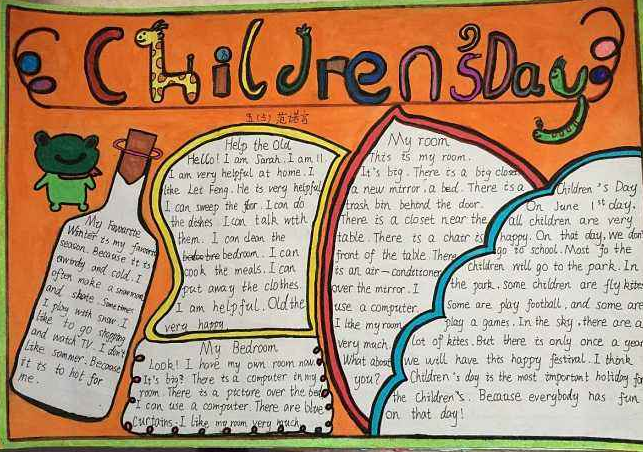 Children'sDay
五(3) 范诺言
Help the Old
Hello! I am Sarah. I am 11.
I am very helpful at home. I
like Lei Feng. He is very helpful
I can sweep the floor. I can do
the dishes I can talk with
them. I can clean the
bedroom. I can
cook the meals. I can
put away the clothes.
I am helpful. Old the
very happy
My Favourite
Winter is my favorite
season. Because it is
windy and cold. I
often make a snowman
and skate. Sometimes
I play with snow I
like to go shopping
and watch TV. I don't
like sommer. Because
it is to hot for
me.
My Bedroom
Look! I have my own room now.
It's big? There is a computer in my
room. There is a picture over the bed
I can use a computer. There are blue
curtains. I like my room very much
My room
This is my room.
It's big. There is a big closet
a new mirror. a bed. There is a
trash bin behind the door.
There is a closet near the
table. There is a chair is
front of the table There
is an air-conditioner
over the mirror. I
use a computer.
I like my room
very much.
What about
you?
Children's Day
On June 1st day,
all children are very
happy. On that day, we don't
go to school. Most fo the
Children will go to the park. In
the park. some children are fly kites
some are play football, and some are
play a games. In the sky, there are a
lot of kites. But there is only once a year
we will have this happy festival. I think
Children's day is the most important holiday for
the Children's. Because everybody has fun
on that day!